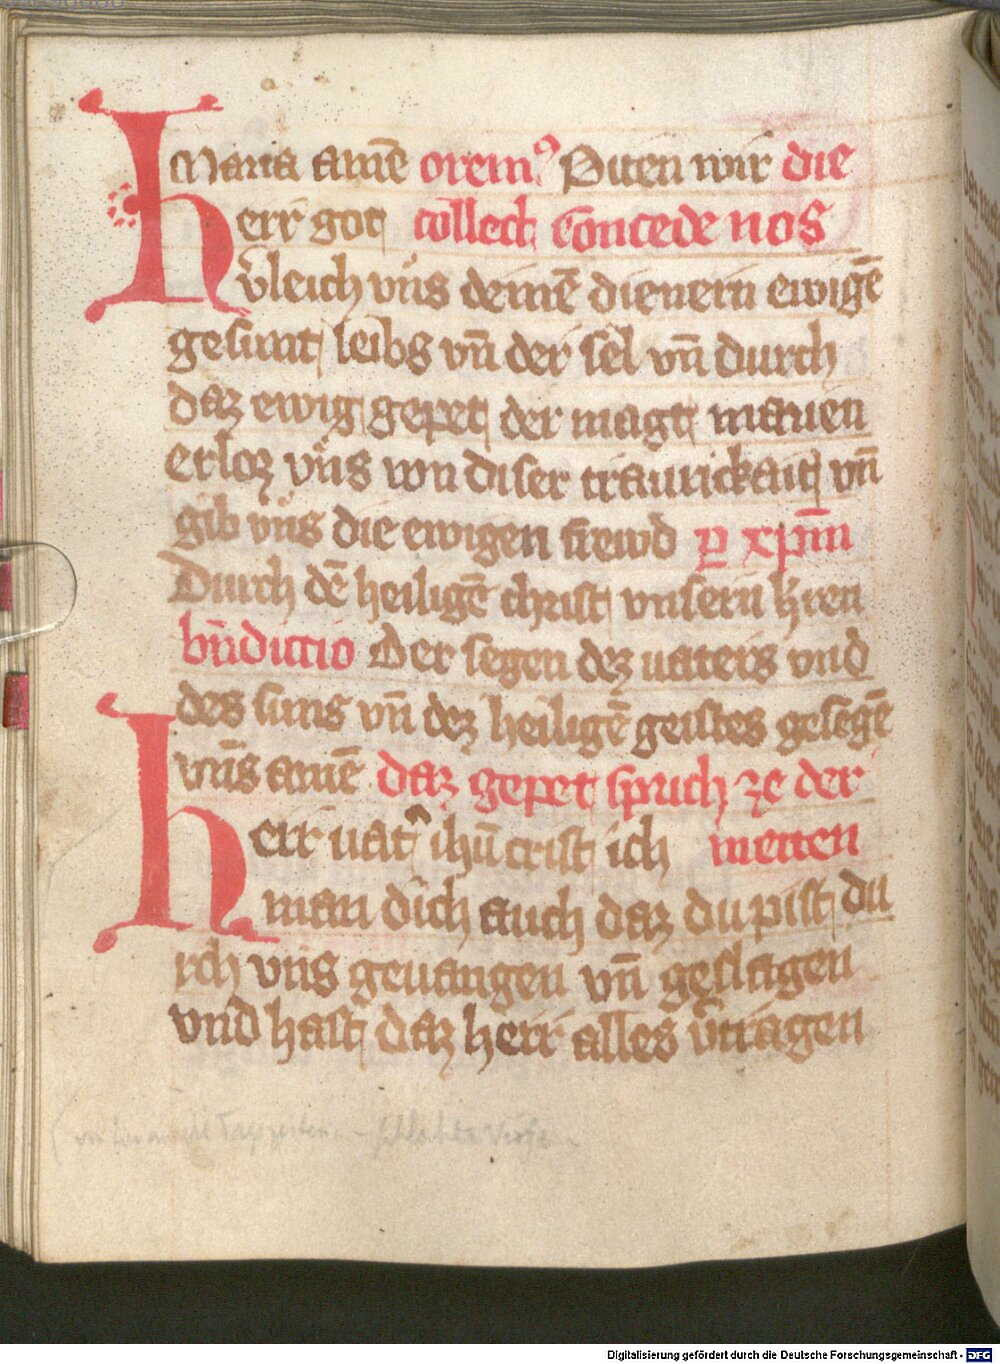 Maria amē oremꝰ Piten wir die
herr got collect Concede nos
v̄leich vns deinē dienern ewigē
gesunt leibs vn̄ der sel vn̄ durch
daz ewig gepet der magt marien
erloz vns von diser traurickait vn̄
gib vns die ewigen frewd ꝑ xpm̄
Durch dē heiligē christ vnsern h̄ren
bn̄dictio Der segen dez uaters vnd
des suns vn̄ dez heiligē geistes gesegē
vns amē daz gepet sprich ze der
herr uat̄ ihū crist ich metten
man dich auch daz du pist du
rch vns geuangen vn̄ geslagen
vnd hast daz herr alles v̄tragen
Digitalisierung gefördert durch die Deutsche Forschungsgemeinschaft - DFG